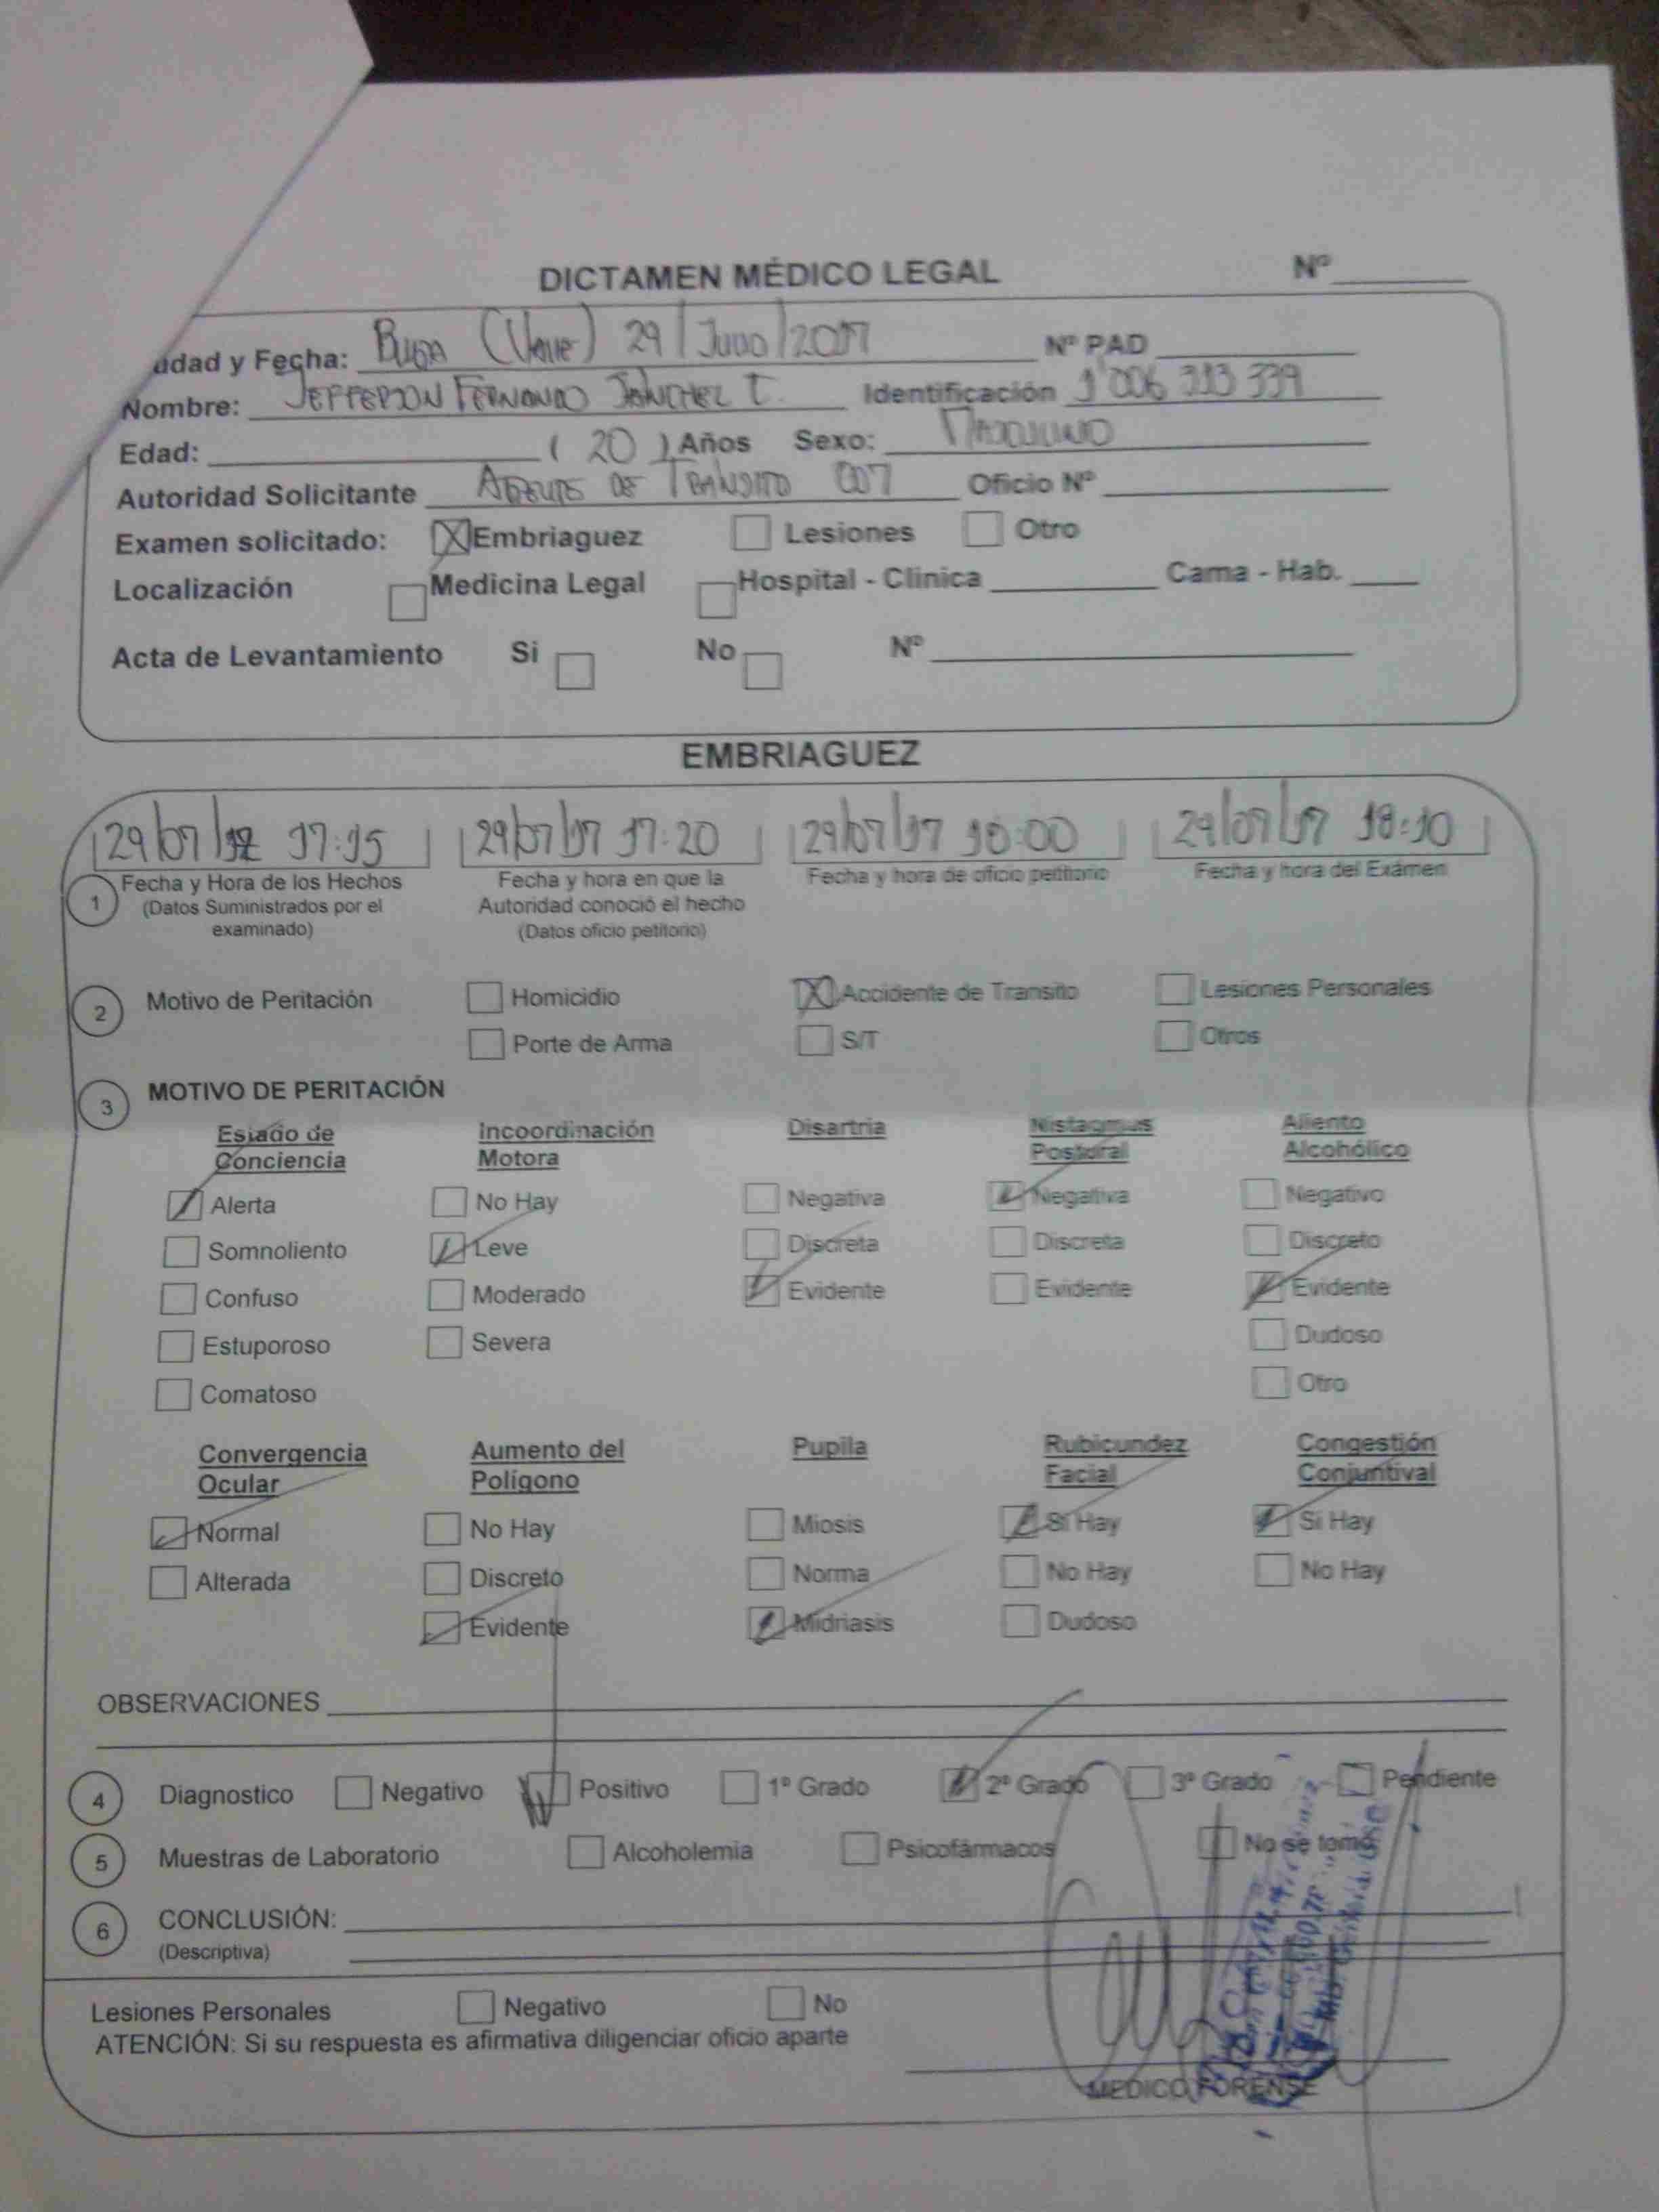 DICTAMEN MÉDICO LEGAL Nº
udad y Fecha: BUGA (Valle) 29/JULIO/2017 Nº PAD
Nombre: JEFFERSON FERNANDO SANCHEZ T. Identificación 1'006 313 339
Edad: (20) Años Sexo: MASCULINO
Autoridad Solicitante AGENTE DE TRANSITO 007 Oficio Nº
Examen solicitado: X Embriaguez Lesiones Otro
Localización Medicina Legal Hospital - Clinica Cama - Hab.
Acta de Levantamiento Si No Nº
EMBRIAGUEZ
29/07/17 17:15 29/07/17 17:20 29/07/17 18:00 29/07/17 18:10
1 Fecha y Hora de los Hechos Fecha y hora en que la Fecha y hora de oficio petitorio Fecha y hora del Exámen
(Datos Suministrados por el Autoridad conoció el hecho
examinado) (Datos oficio petitorio)
2 Motivo de Peritación Homicidio X Accidente de Transito Lesiones Personales
Porte de Arma S/T Otros
3 MOTIVO DE PERITACIÓN
Estado de Incoordinación Disartria Nistagmus Aliento
Conciencia Motora Postural Alcohólico
Alerta No Hay Negativa Negativa Negativo
Somnoliento Leve Discreta Discreta Discreto
Confuso Moderado Evidente Evidente Evidente
Estuporoso Severa Dudoso
Comatoso Otro
Convergencia Aumento del Pupila Rubicundez Congestión
Ocular Polígono Facial Conjuntival
Normal No Hay Miosis Si Hay Si Hay
Alterada Discreto Norma No Hay No Hay
Evidente Midriasis Dudoso
OBSERVACIONES
4 Diagnostico Negativo Positivo 1º Grado 2º Grado 3º Grado Pendiente
5 Muestras de Laboratorio Alcoholemia Psicofármacos No se tomó
6 CONCLUSIÓN:
(Descriptiva)
Lesiones Personales Negativo No
ATENCIÓN: Si su respuesta es afirmativa diligenciar oficio aparte
MEDICO FORENSE